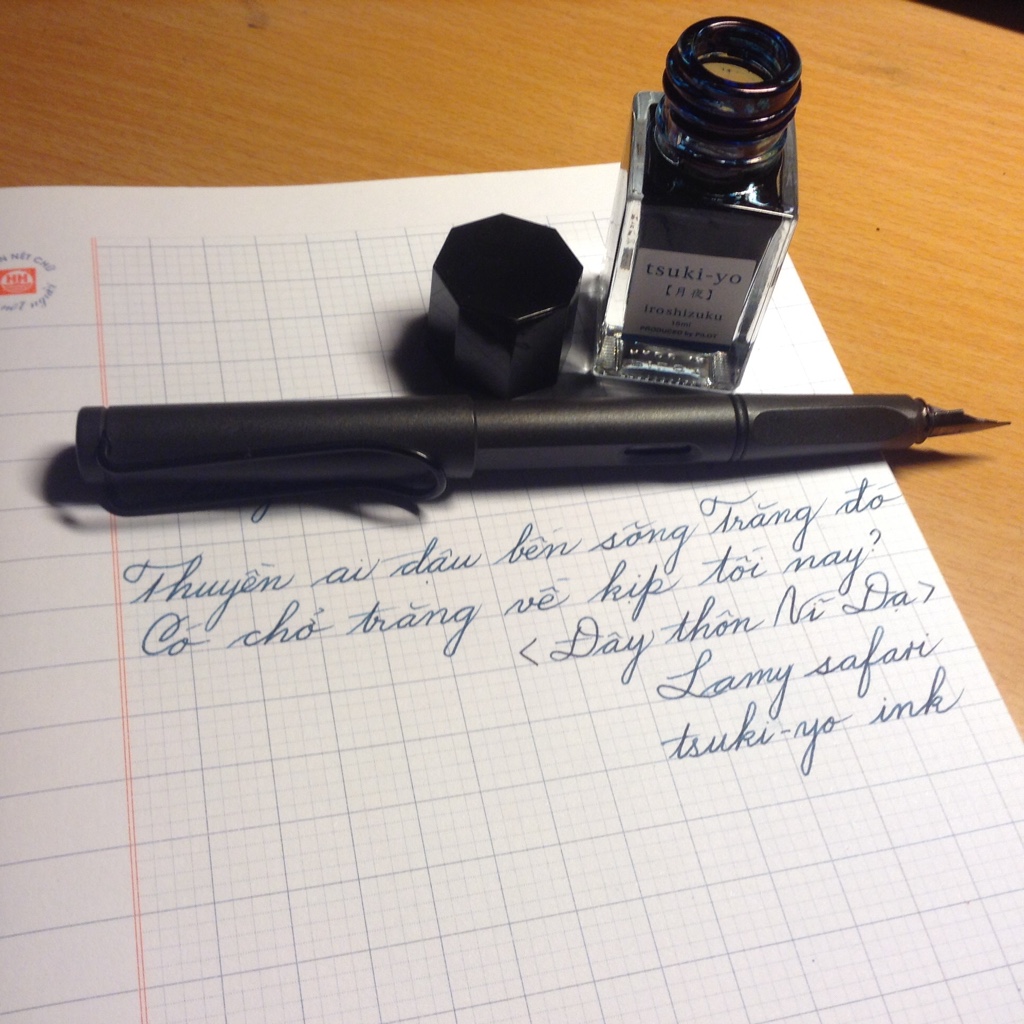 N NÉT CHỮ
HM
tsuki-yo
【月夜】
iroshizuku
15ml
PRODUCED by PILOT
Thuyền ai đậu bến sông Trăng đó
Có chở trăng về kịp tối nay?
<Đây thôn Vĩ Dạ>
Lamy safari
tsuki-yo ink